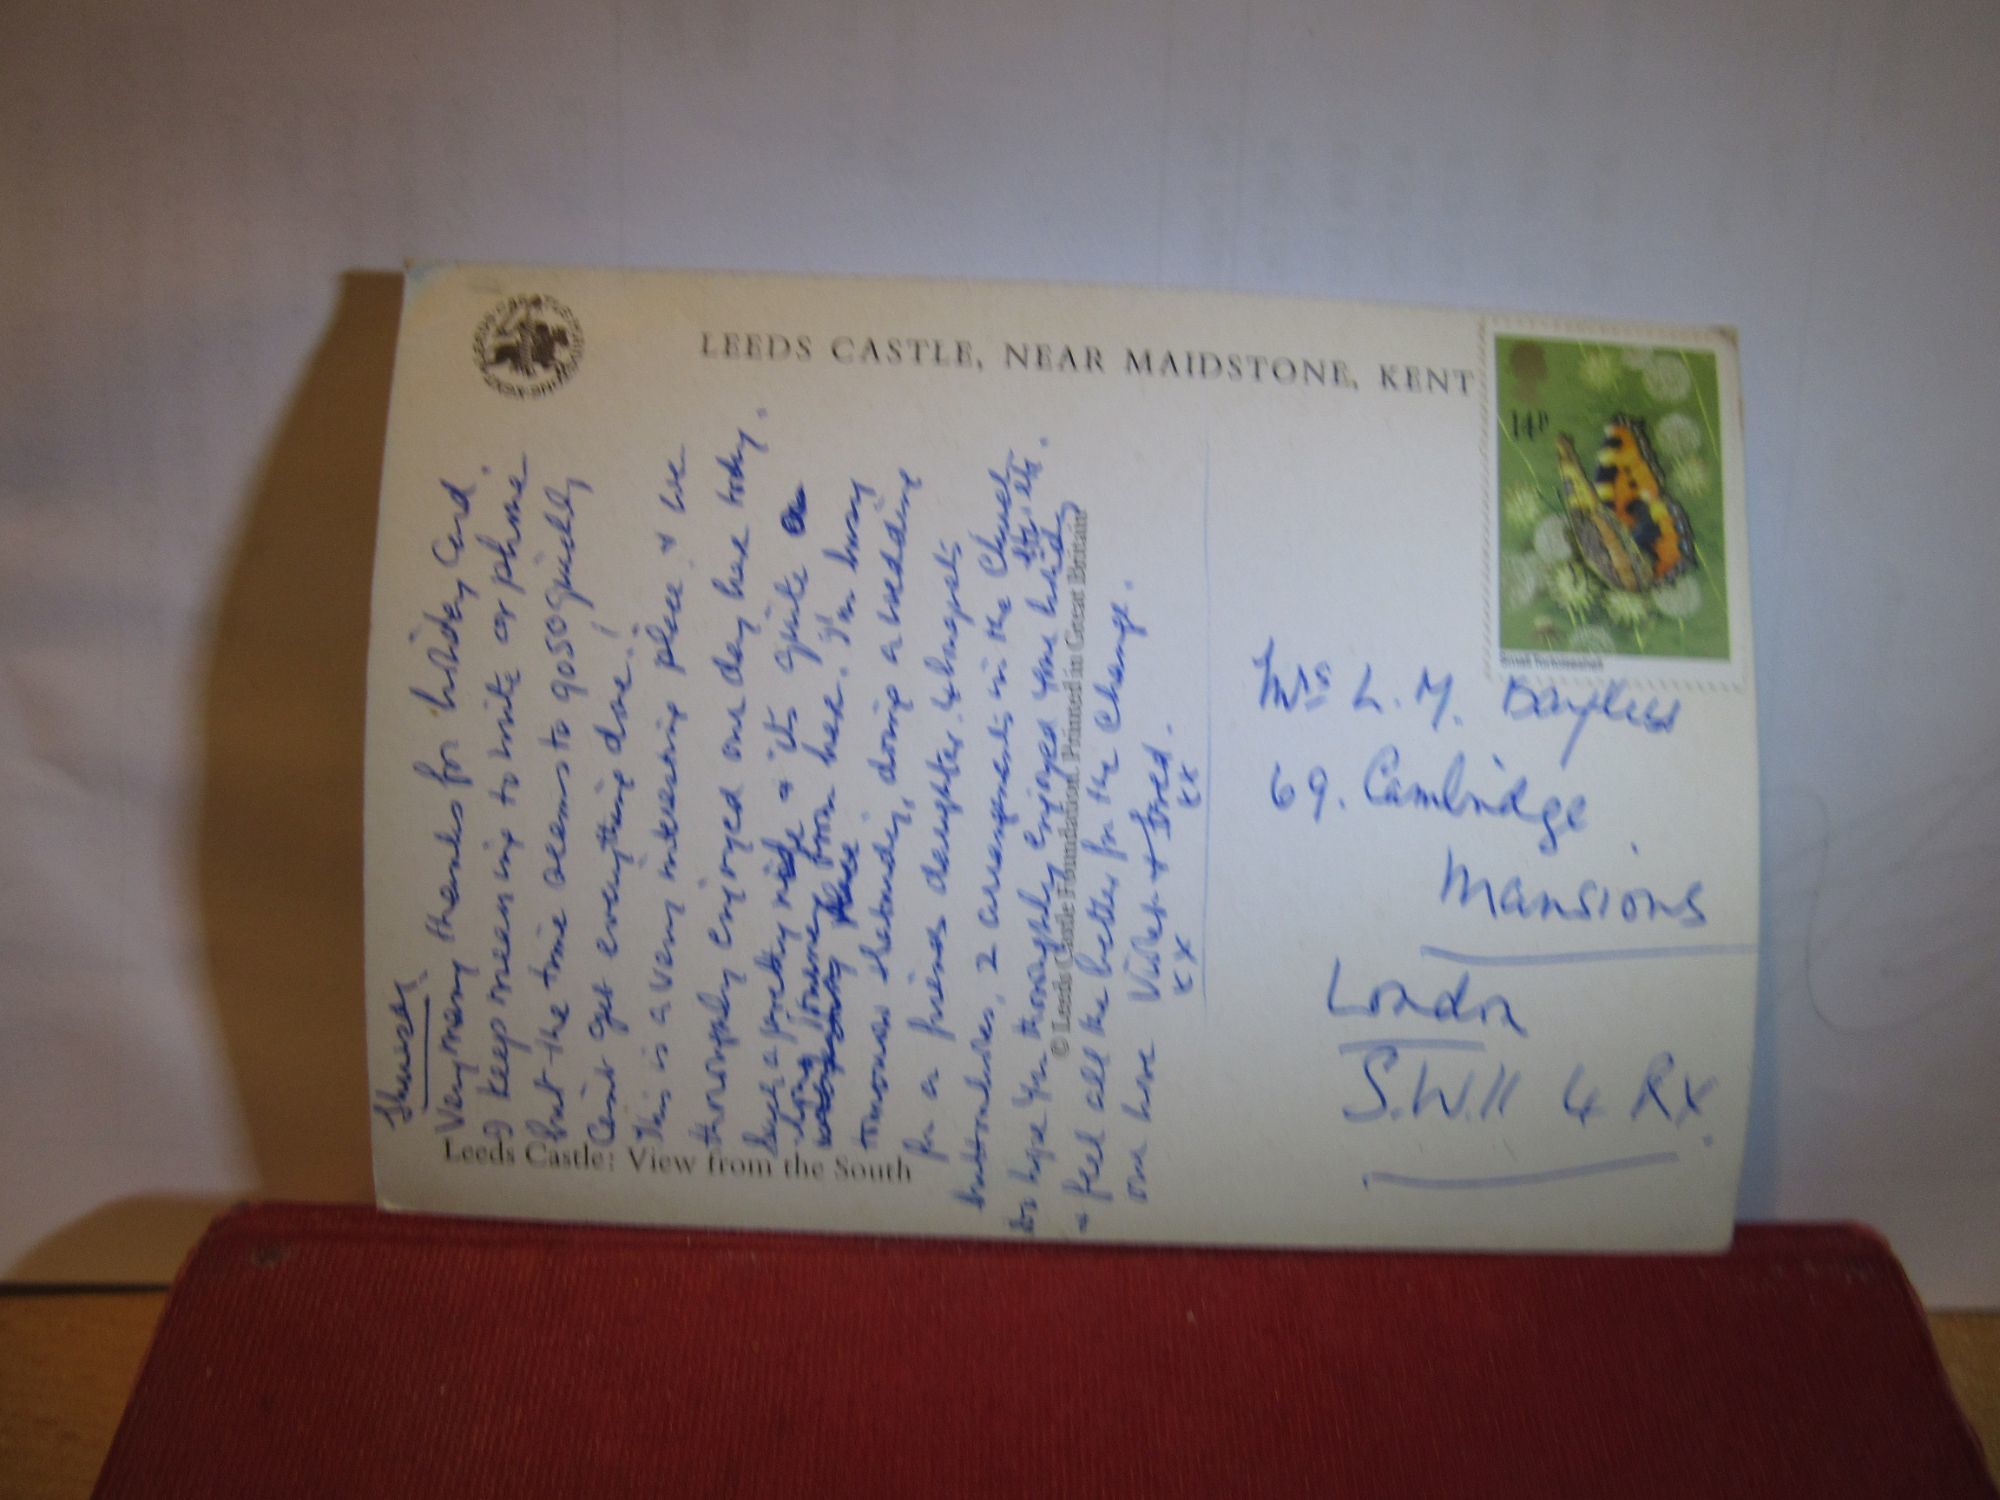 LEEDS CASTLE, NEAR MAIDSTONE, KENT
14P
Small Tortoiseshell
Thursday
Very many thanks for holiday Card.
I keep meaning to write or phone
but the time seems to go so quickly
Cant get everything done!
This is a very interesting place & we
thoroughly enjoyed our day here today.
Such a pretty ride & its quite a
long journey from here. I'm busy
tomorrow & Saturday, doing a wedding
for a friends daughter. 4 bouquets
buttonholes, 2 arrangements in the Church
Do hope you thoroughly enjoyed your holiday
& feel all the better for the change.
our love Violet & Fred.
xx xx
Leeds Castle: View from the South
© Leeds Castle Foundation. Printed in Great Britain
Mrs L. M. Bayliss
69. Cambridge
Mansions
London
S.W.11 4 RX.